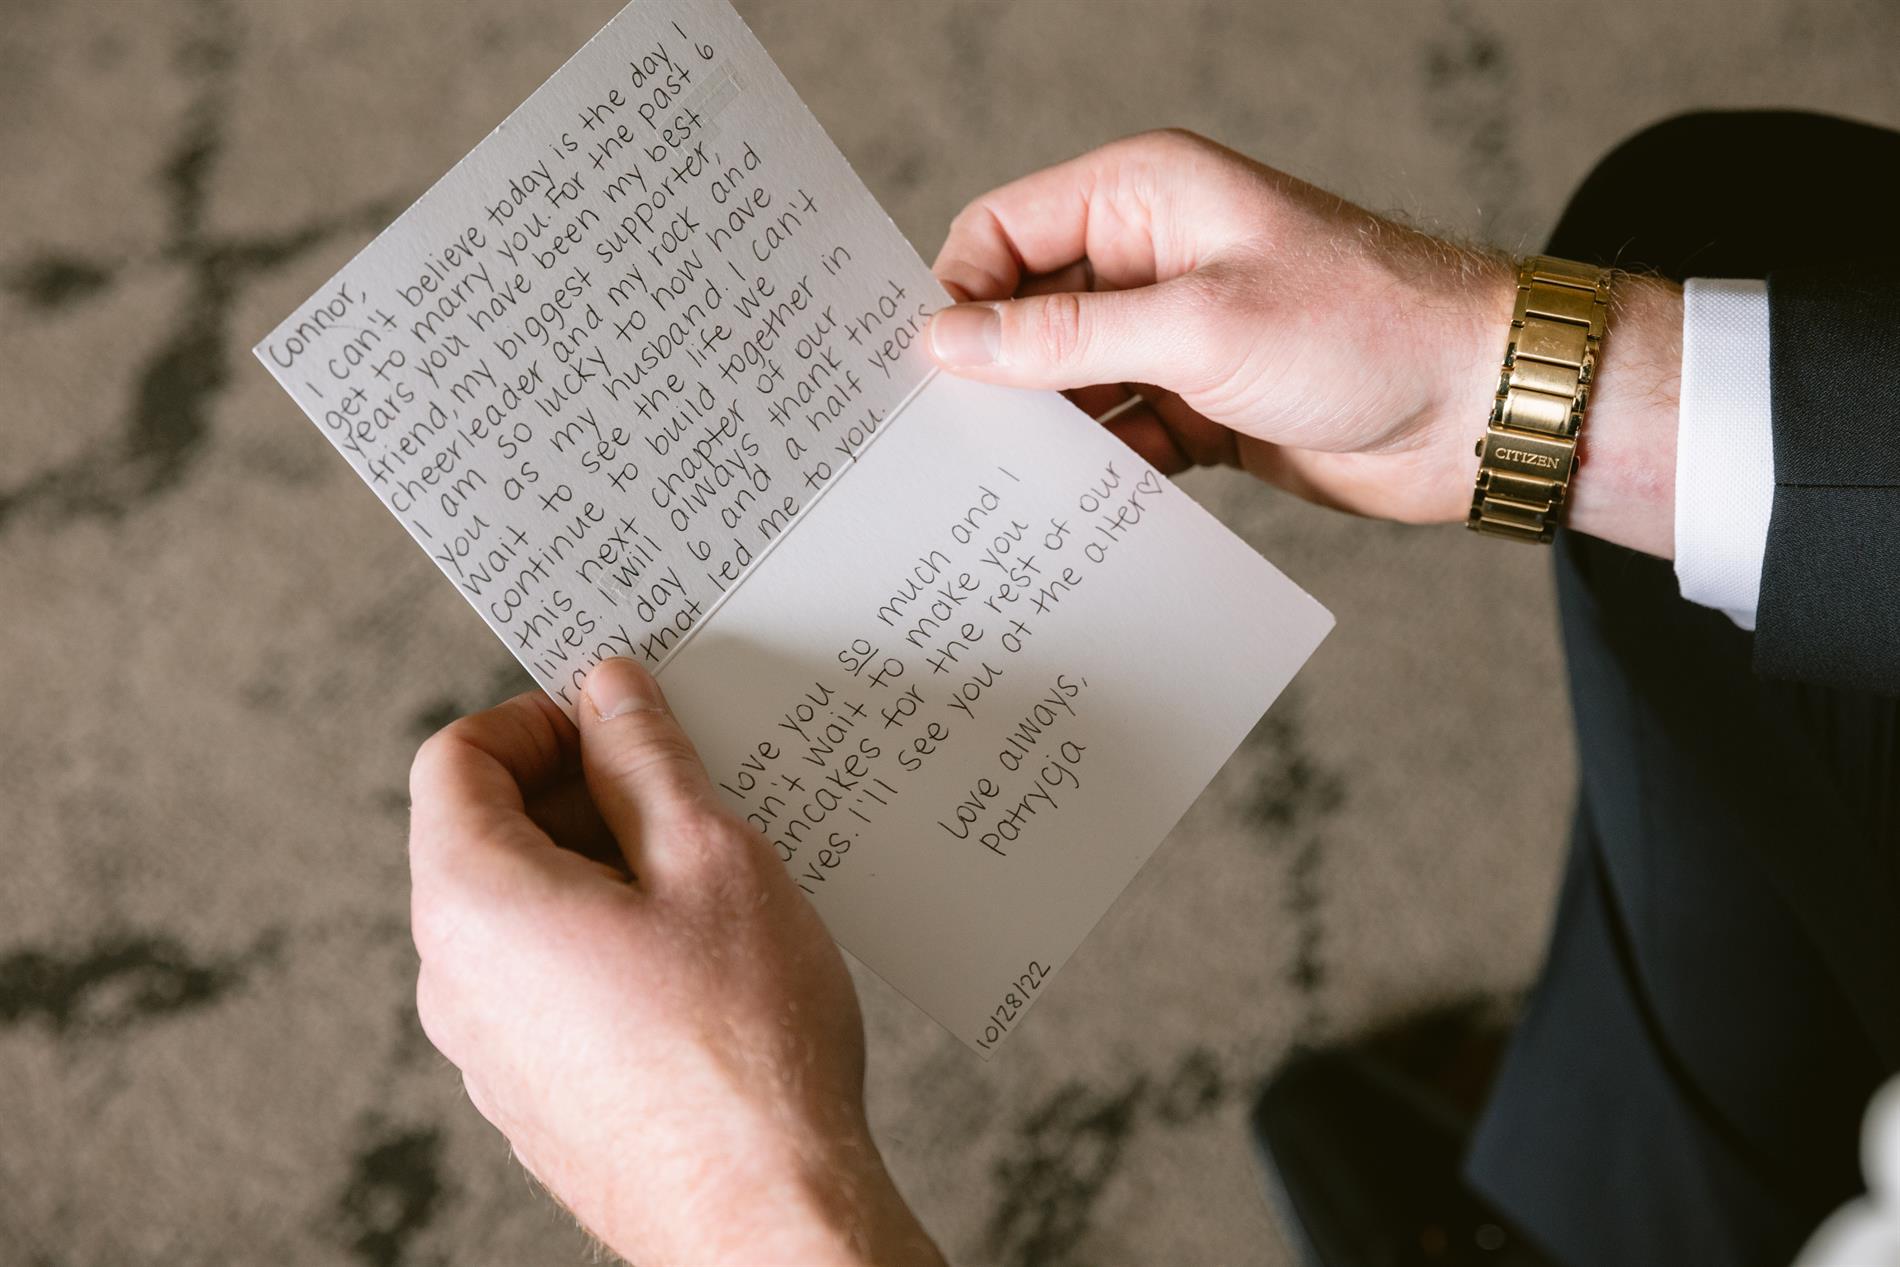 Connor,
I can't believe today is the day I
get to marry you. For the past 6
years you have been my best
friend, my biggest supporter,
cheerleader and my rock and
I am so lucky to now have
you as my husband. I can't
wait to see the life we
continue to build together in
this next chapter of our
lives. I will always thank that
rainy day 6 and a half years
that led me to you.
love you so much and I
an't wait to make you
ancakes for the rest of our
ives. I'll see you at the alter♡
Love always,
Patrycja
10/28/22
CITIZEN